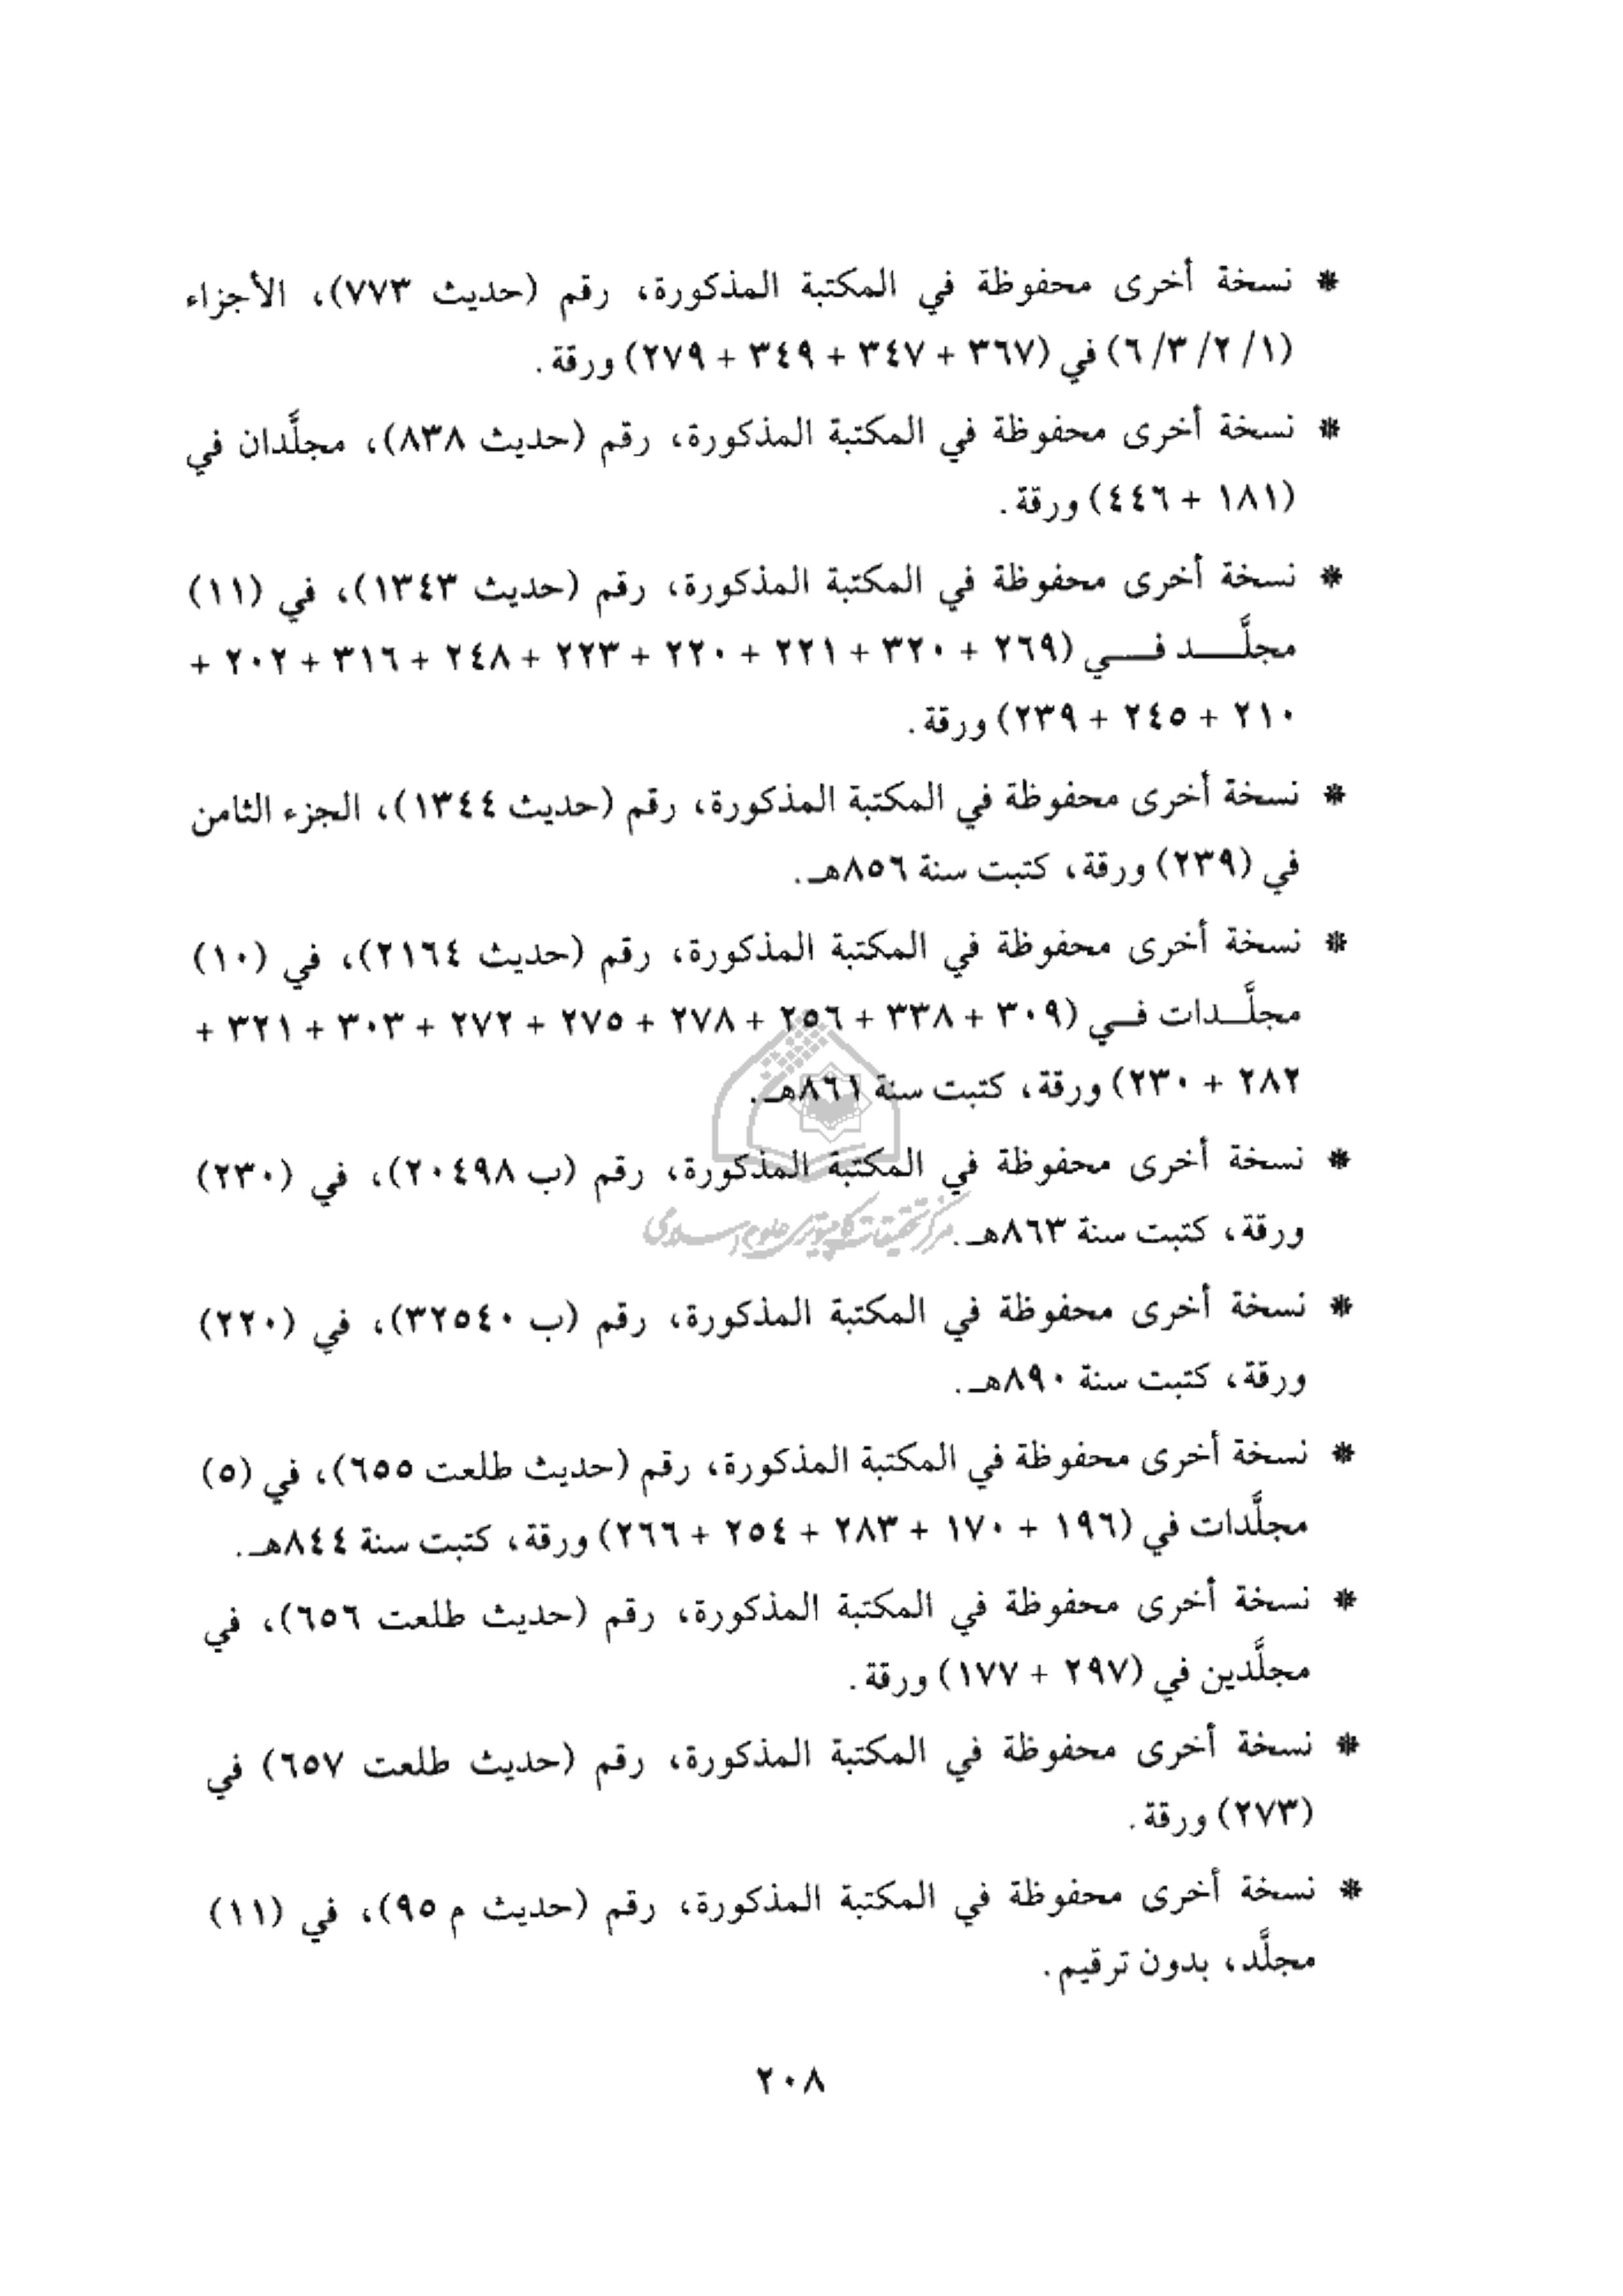 * نسخة أخرى محفوظة في المكتبة المذكورة، رقم (حديث ٧٧٣)، الأجزاء
(١/ ٢/ ٣/ ٦) في (٣٦٧ + ٣٤٧ + ٣٤٩ + ٢٧٩) ورقة.
* نسخة أخرى محفوظة في المكتبة المذكورة، رقم (حديث ٨٣٨)، مجلَّدان في
(١٨١ + ٤٤٦) ورقة.
* نسخة أخرى محفوظة في المكتبة المذكورة، رقم (حديث ١٣٤٣)، في (١١)
مجلَّــــد فــــي (٢٦٩ + ٣٢٠ + ٢٢١ + ٢٢٠ + ٢٢٣ + ٢٤٨ + ٣١٦ + ٢٠٢ +
٢١٠ + ٢٤٥ + ٢٣٩) ورقة.
* نسخة أخرى محفوظة في المكتبة المذكورة، رقم (حديث ١٣٤٤)، الجزء الثامن
في (٢٣٩) ورقة، كتبت سنة ٨٥٦هـ.
* نسخة أخرى محفوظة في المكتبة المذكورة، رقم (حديث ٢١٦٤)، في (١٠)
مجلَّــدات فــي (٣٠٩ + ٣٣٨ + ٢٥٦ + ٢٧٨ + ٢٧٥ + ٢٧٢ + ٣٠٣ + ٣٢١ +
٢٨٢ + ٢٣٠) ورقة، كتبت سنة ٨٦١هـ.
* نسخة أخرى محفوظة في المكتبة المذكورة، رقم (ب ٢٠٤٩٨)، في (٢٣٠)
ورقة، كتبت سنة ٨٦٣هـ.
مركز تحقيقات كامپيوترى علوم اسلامى
* نسخة أخرى محفوظة في المكتبة المذكورة، رقم (ب ٣٢٥٤٠)، في (٢٢٠)
ورقة، كتبت سنة ٨٩٠هـ.
* نسخة أخرى محفوظة في المكتبة المذكورة، رقم (حديث طلعت ٦٥٥)، في (٥)
مجلَّدات في (١٩٦ + ١٧٠ + ٢٨٣ + ٢٥٤ + ٢٦٦) ورقة، كتبت سنة ٨٤٤هـ.
* نسخة أخرى محفوظة في المكتبة المذكورة، رقم (حديث طلعت ٦٥٦)، في
مجلَّدين في (٢٩٧ + ١٧٧) ورقة.
* نسخة أخرى محفوظة في المكتبة المذكورة، رقم (حديث طلعت ٦٥٧) في
(٢٧٣) ورقة.
* نسخة أخرى محفوظة في المكتبة المذكورة، رقم (حديث م ٩٥)، في (١١)
مجلَّد، بدون ترقيم.
٢٠٨